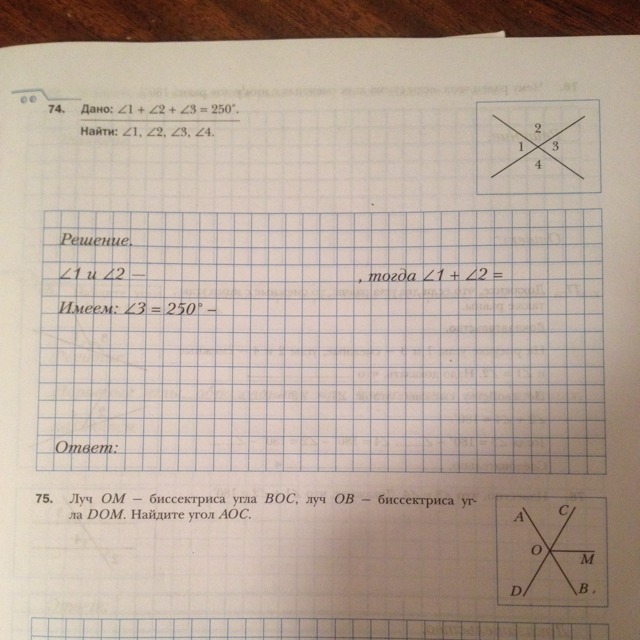 74. Дано: ∠1 + ∠2 + ∠3 = 250°.
Найти: ∠1, ∠2, ∠3, ∠4.
2
1 3
4
Решение.
∠1 и ∠2 — , тогда ∠1 + ∠2 =
Имеем: ∠3 = 250° –
Ответ:
75. Луч OM — биссектриса угла BOC, луч OB — биссектриса уг-
ла DOM. Найдите угол AOC.
A C
O
M
D B